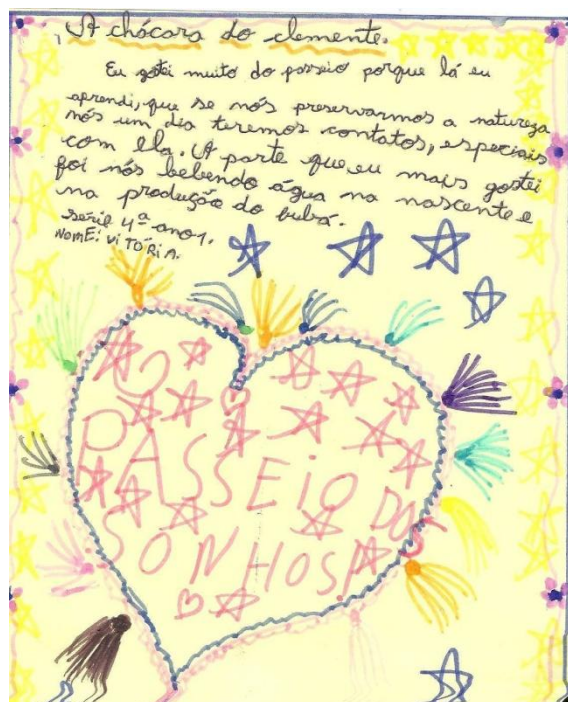 A chácara do clemente.
Eu gostei muito do passeio porque lá eu
aprendi, que se nós preservarmos a natureza
nós um dia teremos contatos, especiais
com ela. A parte que eu mais gostei
foi nós bebendo água na nascente e
na produção do bubá.
série 4ª ano 1.
NOME: VITÓRIA.
O
PASSEIO DOS
SONHOS